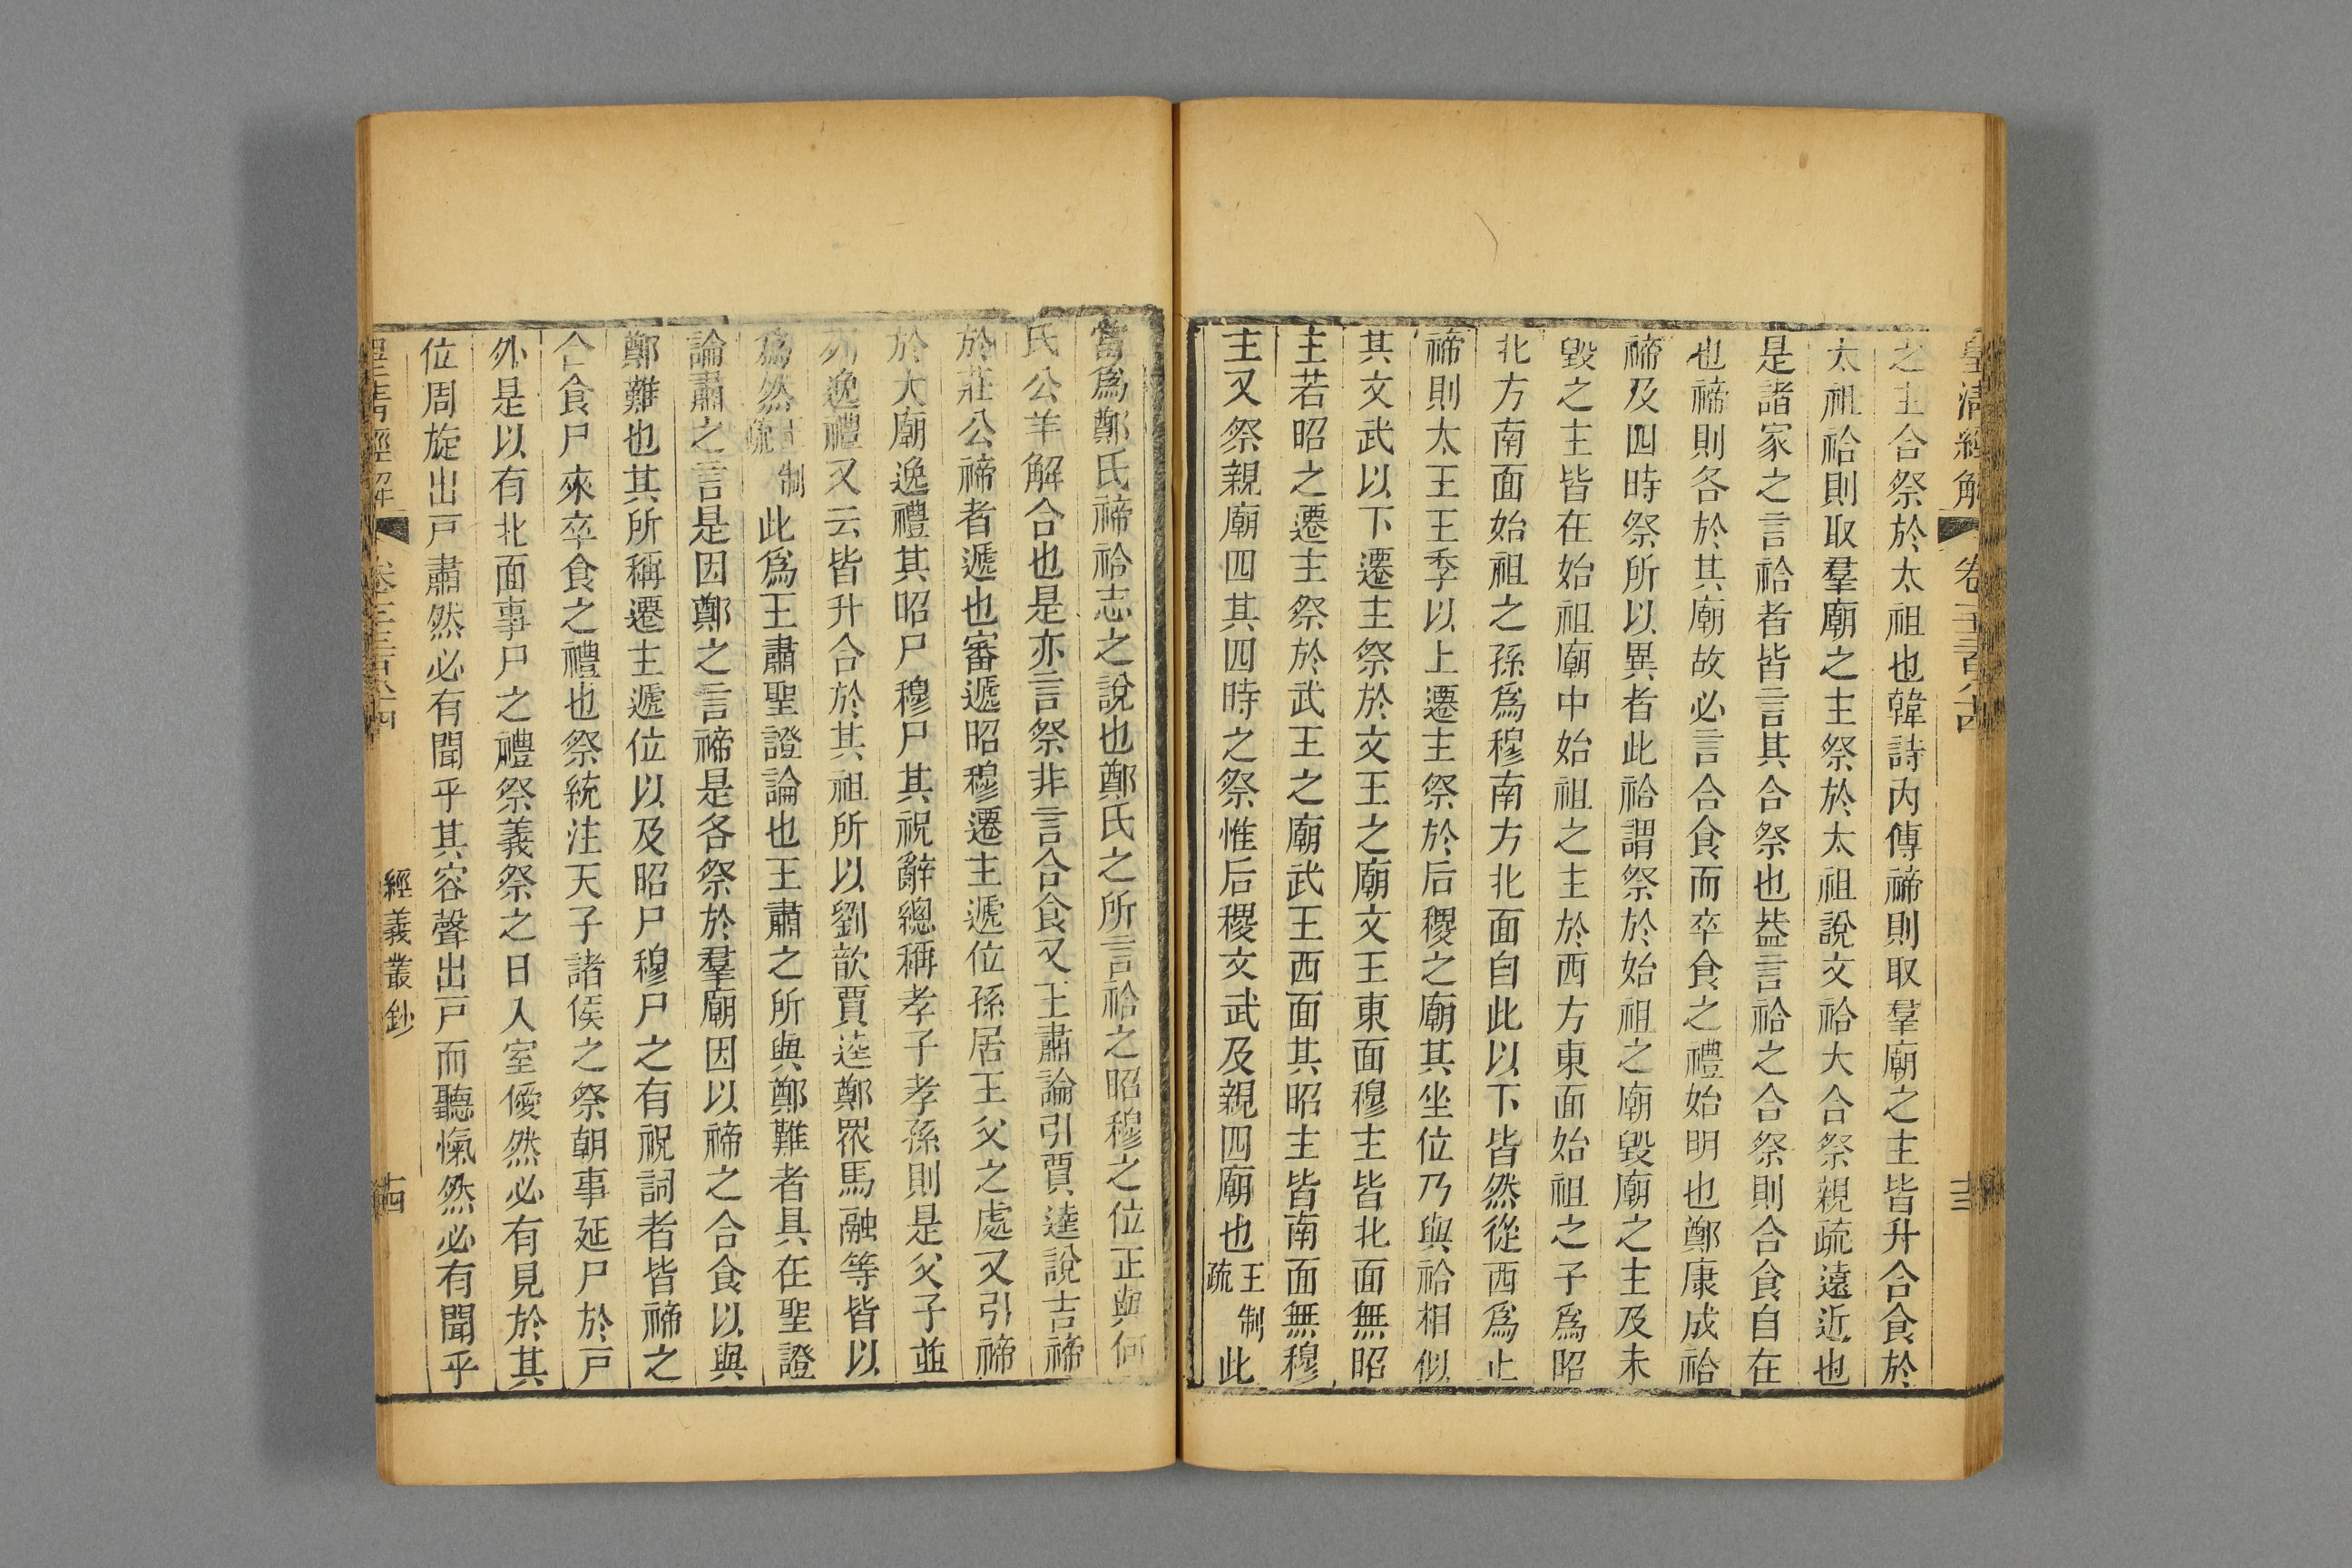 皇清經解 卷一千三百八十四 十三
之主合祭於太祖也韓詩内傳禘則取羣廟之主皆升合食於
太祖祫則取羣廟之主祭於太祖說文祫大合祭親疏遠近也
是諸家之言祫者皆言其合祭也葢言祫之合祭則合食自在
也禘則各於其廟故必言合食而卒食之禮始明也鄭康成祫
禘及四時祭所以異者此祫謂祭於始祖之廟毀廟之主及未
毀之主皆在始祖廟中始祖之主於西方東面始祖之子爲昭
北方南面始祖之孫爲穆南方北面自此以下皆然從西爲止
禘則太王王季以上遷主祭於后稷之廟其坐位乃與祫相似
其文武以下遷主祭於文王之廟文王東面穆主皆北面無昭
主若昭之遷主祭於武王之廟武王西面其昭主皆南面無穆
主又祭親廟四其四時之祭惟后稷文武及親四廟也王制疏此
當爲鄭氏禘祫志之說也鄭氏之所言祫之昭穆之位正與何
氏公羊解合也是亦言祭非言合食又王肅論引賈逵說吉禘
於莊公禘者遞也審遞昭穆遷主遞位孫居王父之處又引禘
於大廟逸禮其昭尸穆尸其祝辭總稱孝子孝孫則是父子並
列逸禮又云皆升合於其祖所以劉歆賈逵鄭眾馬融等皆以
爲然王制疏此爲王肅聖證論也王肅之所與鄭難者具在聖證
論肅之言是因鄭之言禘是各祭於羣廟因以禘之合食以與
鄭難也其所稱遷主遞位以及昭尸穆尸之有祝詞者皆禘之
合食尸來卒食之禮也祭統注天子諸侯之祭朝事延尸於戸
外是以有北面事尸之禮祭義祭之日入室僾然必有見於其
位周旋出戸肅然必有聞乎其容聲出戸而聽愾然必有聞乎
皇清經解 卷一千三百八十四 經義叢鈔 十四